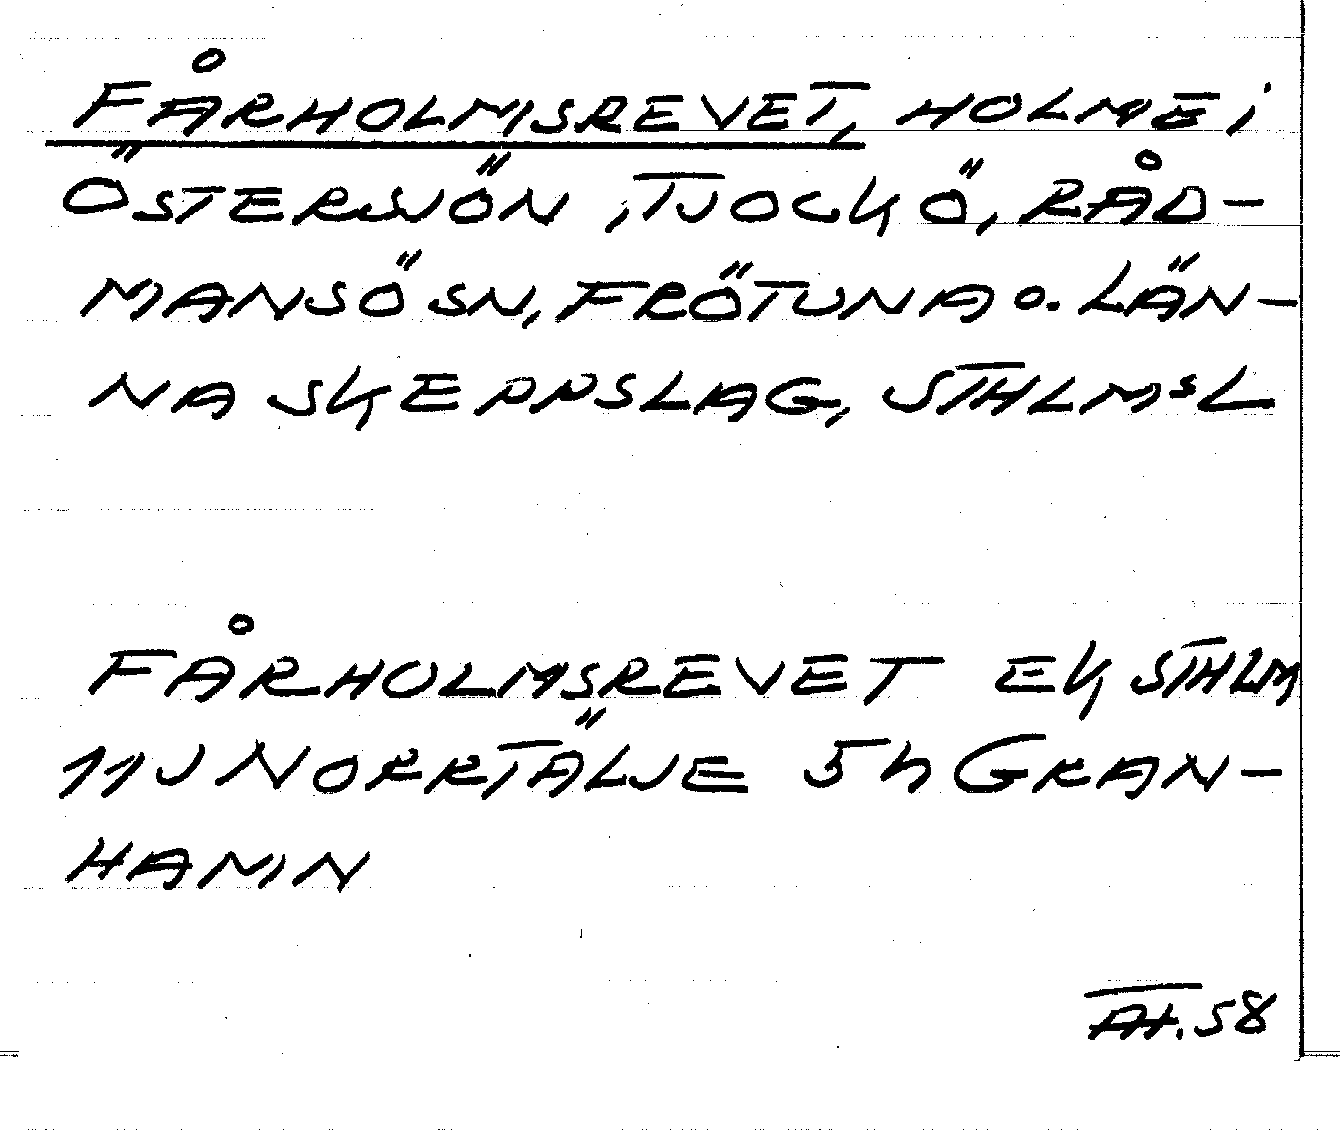 FÅRHOLMSREVET, HOLME i
ÖSTERSJÖN, TJOCKÖ, RÅD-
MANSÖ SN, FRÖTUNA o. LÄN-
NA SKEPPSLAG, STHLMS L
FÅRHOLMSREVET EK STHLM
11J NORRTÄLJE 5h GRAN-
HAMN
58